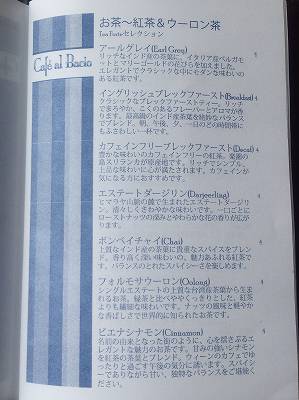 Café al Bacio
お茶～紅茶＆ウーロン茶
Tea Forteセレクション
アールグレイ(Earl Grey)
リッチなインド産の茶葉に、イタリア産ベルガモ
ットとマリーゴールドの花びらを加えました。
エレガントでクラシックな中にモダンな味わいの
ある紅茶です。
イングリッシュブレックファースト(Breakfast)
クラシックなブレックファーストティー。リッチ
でまろやか、こくのあるフレーバーとアロマが香
ります。最高級のインド産茶葉を絶妙なバランス
でブレンド。朝、午後、一日のどの時間帯に
もふさわしい一杯です。
カフェインフリーブレックファースト(Decaf)
豊かな味わいのカフェインフリーの紅茶。楽園の
島スリランカが原産地です。リッチでシンプル、
上品な味わいに心が満たされます。カフェインが
気になる方におすすめです。
エステートダージリン(Darjeerling)
ヒマラヤ山脈の麓で生まれたエステートダージリ
ン。清々しくさわやかな味わいです。一口ごとに
ローストナッツの深みとやわらかな花の香りが広が
ります。
ボンベイチャイ(Chai)
上質なインド産の茶葉に貴重なスパイスをブレン
ド。香り高く深い味わいの、魅力あふれる紅茶で
す。バランスのとれたスパイシーさを楽しめます。
フォルモサウーロン(Oolong)
シングルエステートの上質な台湾産茶葉から生ま
れるお茶。緑茶と比べややくっきりとした、紅茶
よりも繊細な味わいです。ナッツの風味と軽やか
な香ばしさで世界的に知られたお茶です。
ビエナシナモン(Cinnamon)
名前の由来となった街のように、心を揺さぶるエ
レガントな魅力のお茶です。甘みの強いシナモン
を紅茶の茶葉とブレンド。ウィーンのカフェでゆ
ったりと過ごす午後の気分に誘います。スパイシ
ーでありながら甘い、独特なバランスをご堪能く
ださい。